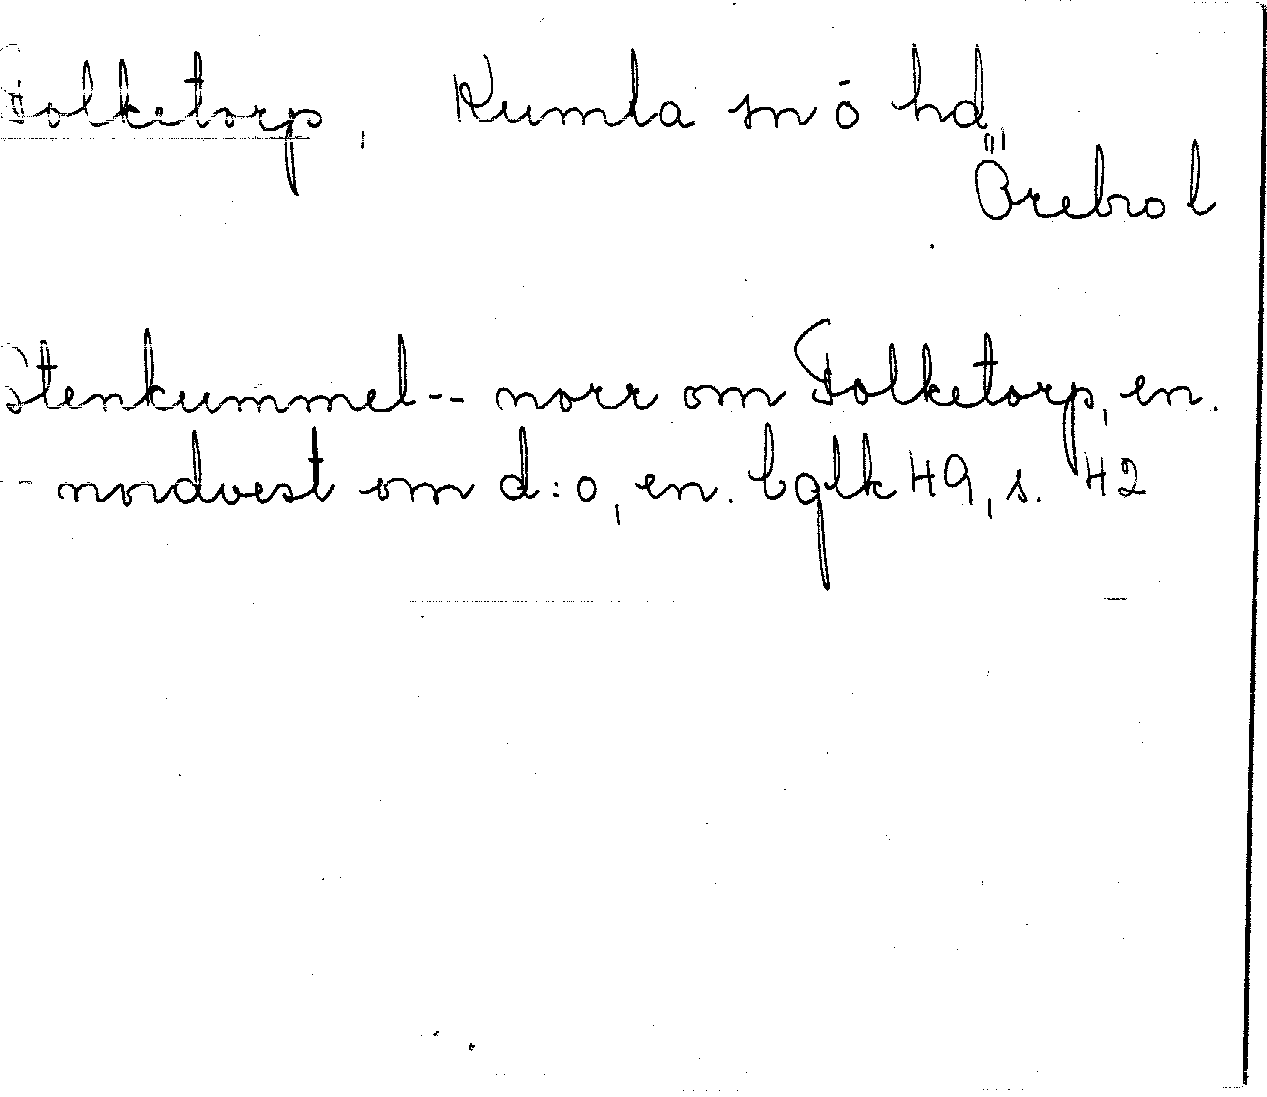 Folketorp, Kumla sn o hd,
Örebro l
Stenkummel -- norr om Folketorp, en.
-- nordvest om d:o, en. Eglk 49, s. 42